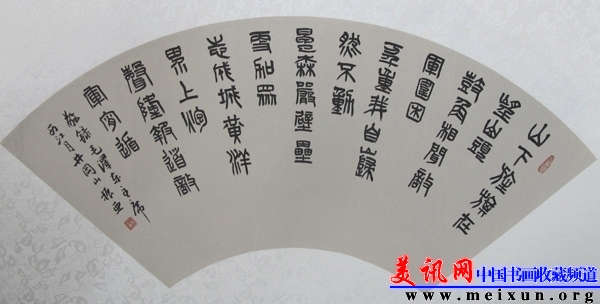 山下旌旗在
望山頭
鼓角相聞敵
軍圍困
重我自巋
然不動
早已森嚴壁壘
更加眾
志成城黃洋
界上炮
聲隆報道敵
軍宵遁
敬錄毛澤東主席
西江月井岡山
美讯网 中国书画收藏网
www.meixun.org